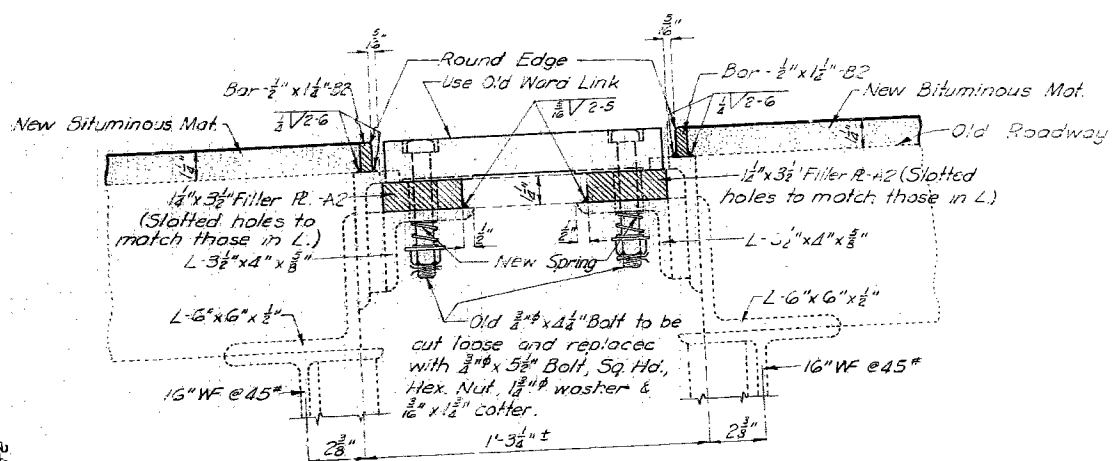 5/16"
5/16"
Round Edge
Use Old Ward Link
Bar-1/2" x 1 1/4"-B2
1/4 V 2-6
5/16 V 2-5
Bar-1/2" x 1 1/2"-B2
1/4 V 2-6
New Bituminous Mat.
New Bituminous Mat.
Old Roadway
1 1/4"
1 1/4"
1 1/4"
1 1/4" x 3 1/2" Filler Pl.-A2
(Slotted holes to
match those in L.)
1 1/2" x 3 1/2" Filler Pl.-A2 (Slotted
holes to match those in L.)
1/2"
1/2"
L-3 1/2" x 4" x 5/8"
New Spring
L-3 1/2" x 4" x 5/8"
L-6" x 6" x 1/2"
L-6" x 6" x 1/2"
Old 3/4"ϕ x 4 1/4" Bolt to be
cut loose and replaced
with 3/4"ϕ x 5 1/2" Bolt, Sq. Hd.,
Hex. Nut, 1 3/4"ϕ washer &
3/16" x 1 3/4" cotter.
16" WF @ 45#
16" WF @ 45#
2 3/8"
1'-3 1/4" ±
2 3/8"